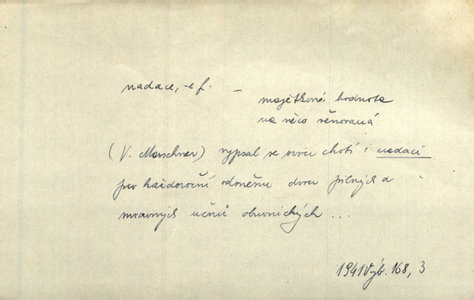 nadace, -e f. - majetková hodnota
na něco věnovaná
(V. Marschner) vypsal se svou chotí i nadaci
pro každoroční odměnu dvou pilných a
mravných učňů obuvnických ...
1941 Výb. 168, 3